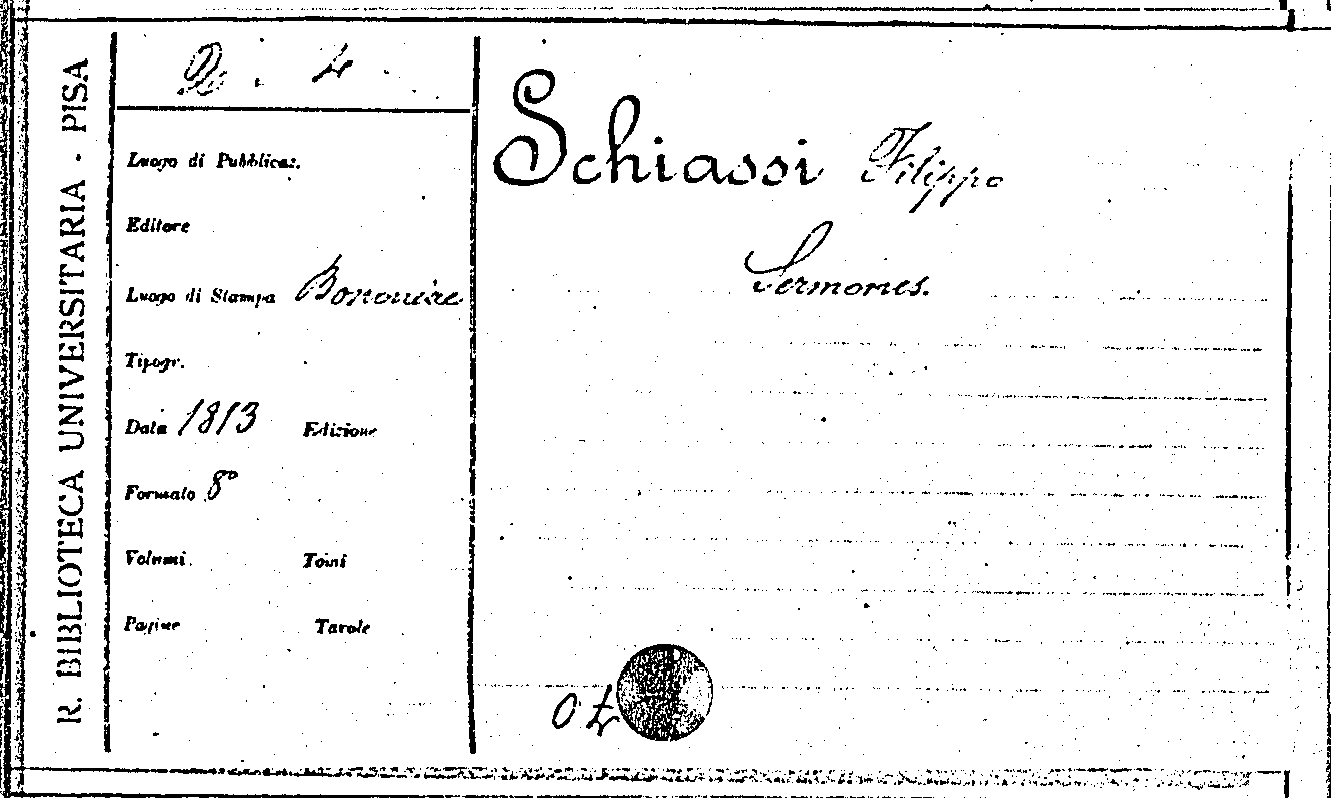 R. BIBLIOTECA UNIVERSITARIA - PISA
4
Luogo di Pubblicaz.
Editore
Luogo di Stampa Bononiae
Tipogr.
Data 1813 Edizione
Formato 8°
Volumi Tomi
Pagine Tavole
Schiassi Filippo
Sermones.